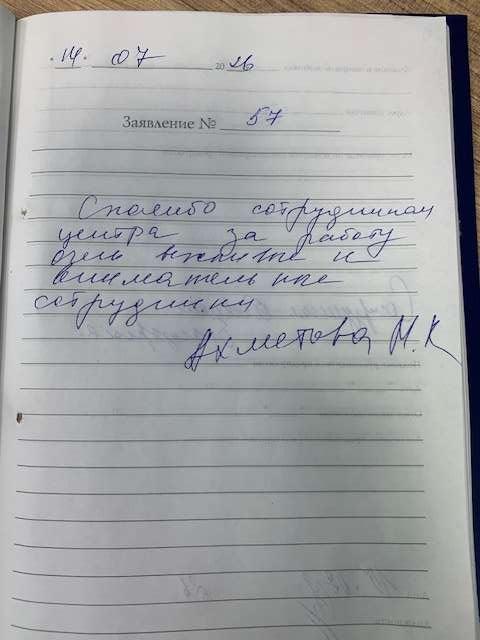 14. 07 2026
Заявление № 57
Спасибо сотрудникам
центра за работу
очень вежливые и
внимательные
сотрудники
Ахметова М.К